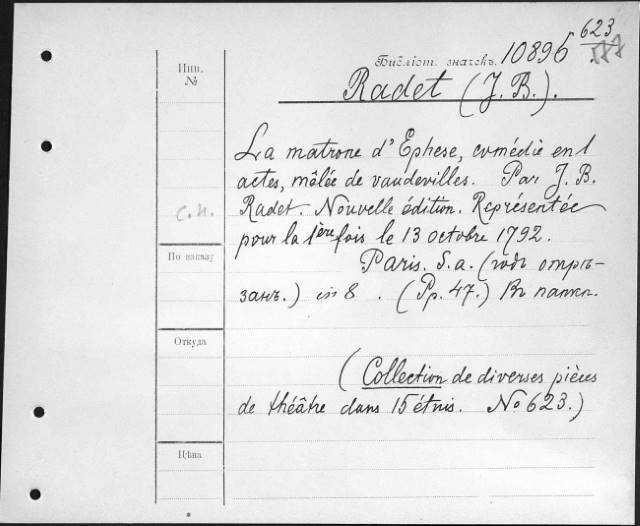 623
Библіот. значекъ. 10896 587
Инв. №
Radet (J. B.).
La matrone d'Ephese, comédie en 1
actes, mêlée de vaudevilles. Par J. B.
С.И.
Radet. Nouvelle édition. Représentée
pour la 1ère fois le 13 octobre 1792.
По шкапу
Paris. S. a. (годъ отрѣ-
занъ.) in 8 . (Pp. 47.) Въ папкѣ.
Откуда
(Collection de diverses pièces
de théâtre dans 15 étuis. No 623.)
Цѣна